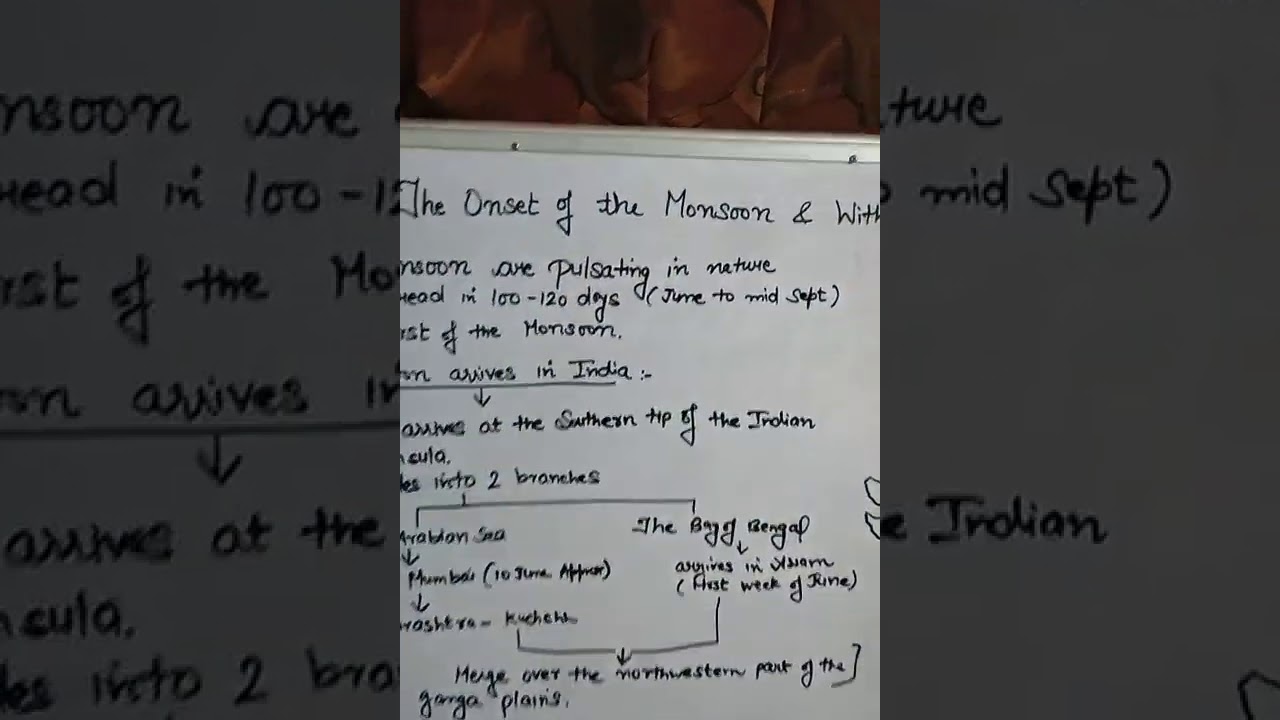 The Onset of the Monsoon & With
nsoon are pulsating in nature
read in 100-120 days (June to mid Sept)
rst of the Monsoon.
on arrives in India :-
arrives at the Southern tip of the Indian
sula.
des into 2 branches
Arabian Sea
The Bay of Bengal
Mumbai (10 June Approx)
arrives in Assam
(First week of June)
rashtra - Kuchchh
Merge over the northwestern part of the
ganga plains.